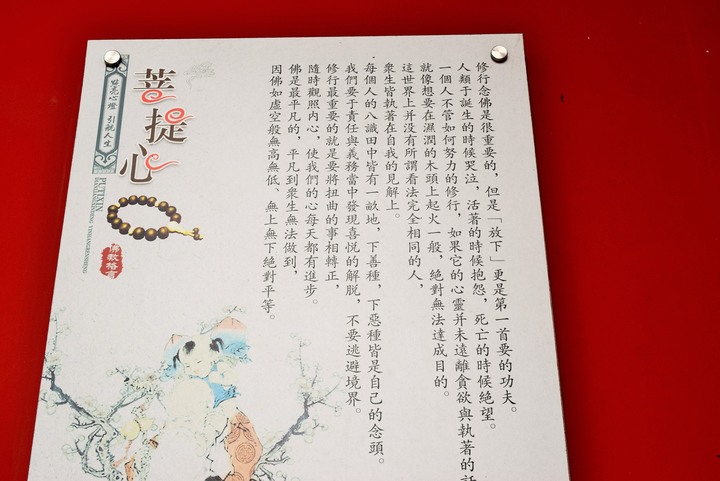 修行念佛是很重要的，但是「放下」更是第一首要的功夫。
人類于誕生的時候哭泣，活著的時候抱怨，死亡的時候絕望。
一個人不管如何努力的修行，如果它的心靈并未遠離貪欲與執著的話
就像想要在濕潤的木頭上起火一般，絕對無法達成目的。
這世界上并没有所謂看法完全相同的人，
衆生皆執著在自我的見解上。
每個人的八識田中皆有一畝地，下善種，下惡種皆是自己的念頭。
我們要于責任與義務當中發現喜悦的解脱，不要逃避境界。
修行最重要的就是要將扭曲的事相轉正，
隨時觀照内心，使我們的心每天都有進步。
佛是最平凡的，平凡到衆生無法做到，
因佛如虚空般無高無低、無上無下絕對平等。
菩提心
點亮心燈 引航人生
PUTIXIN
佛教格言